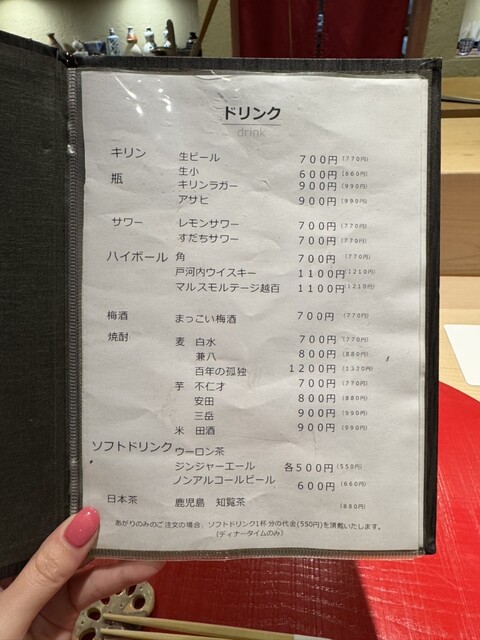 ドリンク
drink
キリン 生ビール 700円 (770円)
生小 600円 (660円)
瓶 キリンラガー 900円 (990円)
アサヒ 900円 (990円)
サワー レモンサワー 700円 (770円)
すだちサワー 700円 (770円)
ハイボール 角 700円 (770円)
戸河内ウイスキー 1100円 (1210円)
マルスモルテージ越百 1100円 (1210円)
梅酒 まっこい梅酒 700円 (770円)
焼酎 麦 白水 700円 (770円)
兼八 800円 (880円)
百年の孤独 1200円 (1320円)
芋 不仁才 700円 (770円)
安田 800円 (880円)
三岳 900円 (990円)
米 田酒 900円 (990円)
ソフトドリンク ウーロン茶
ジンジャーエール 各500円 (550円)
ノンアルコールビール 600円 (660円)
日本茶 鹿児島 知覧茶 (880円)
あがりのみのご注文の場合、ソフトドリンク1杯分の代金(550円)を頂戴いたします。
(ディナータイムのみ)